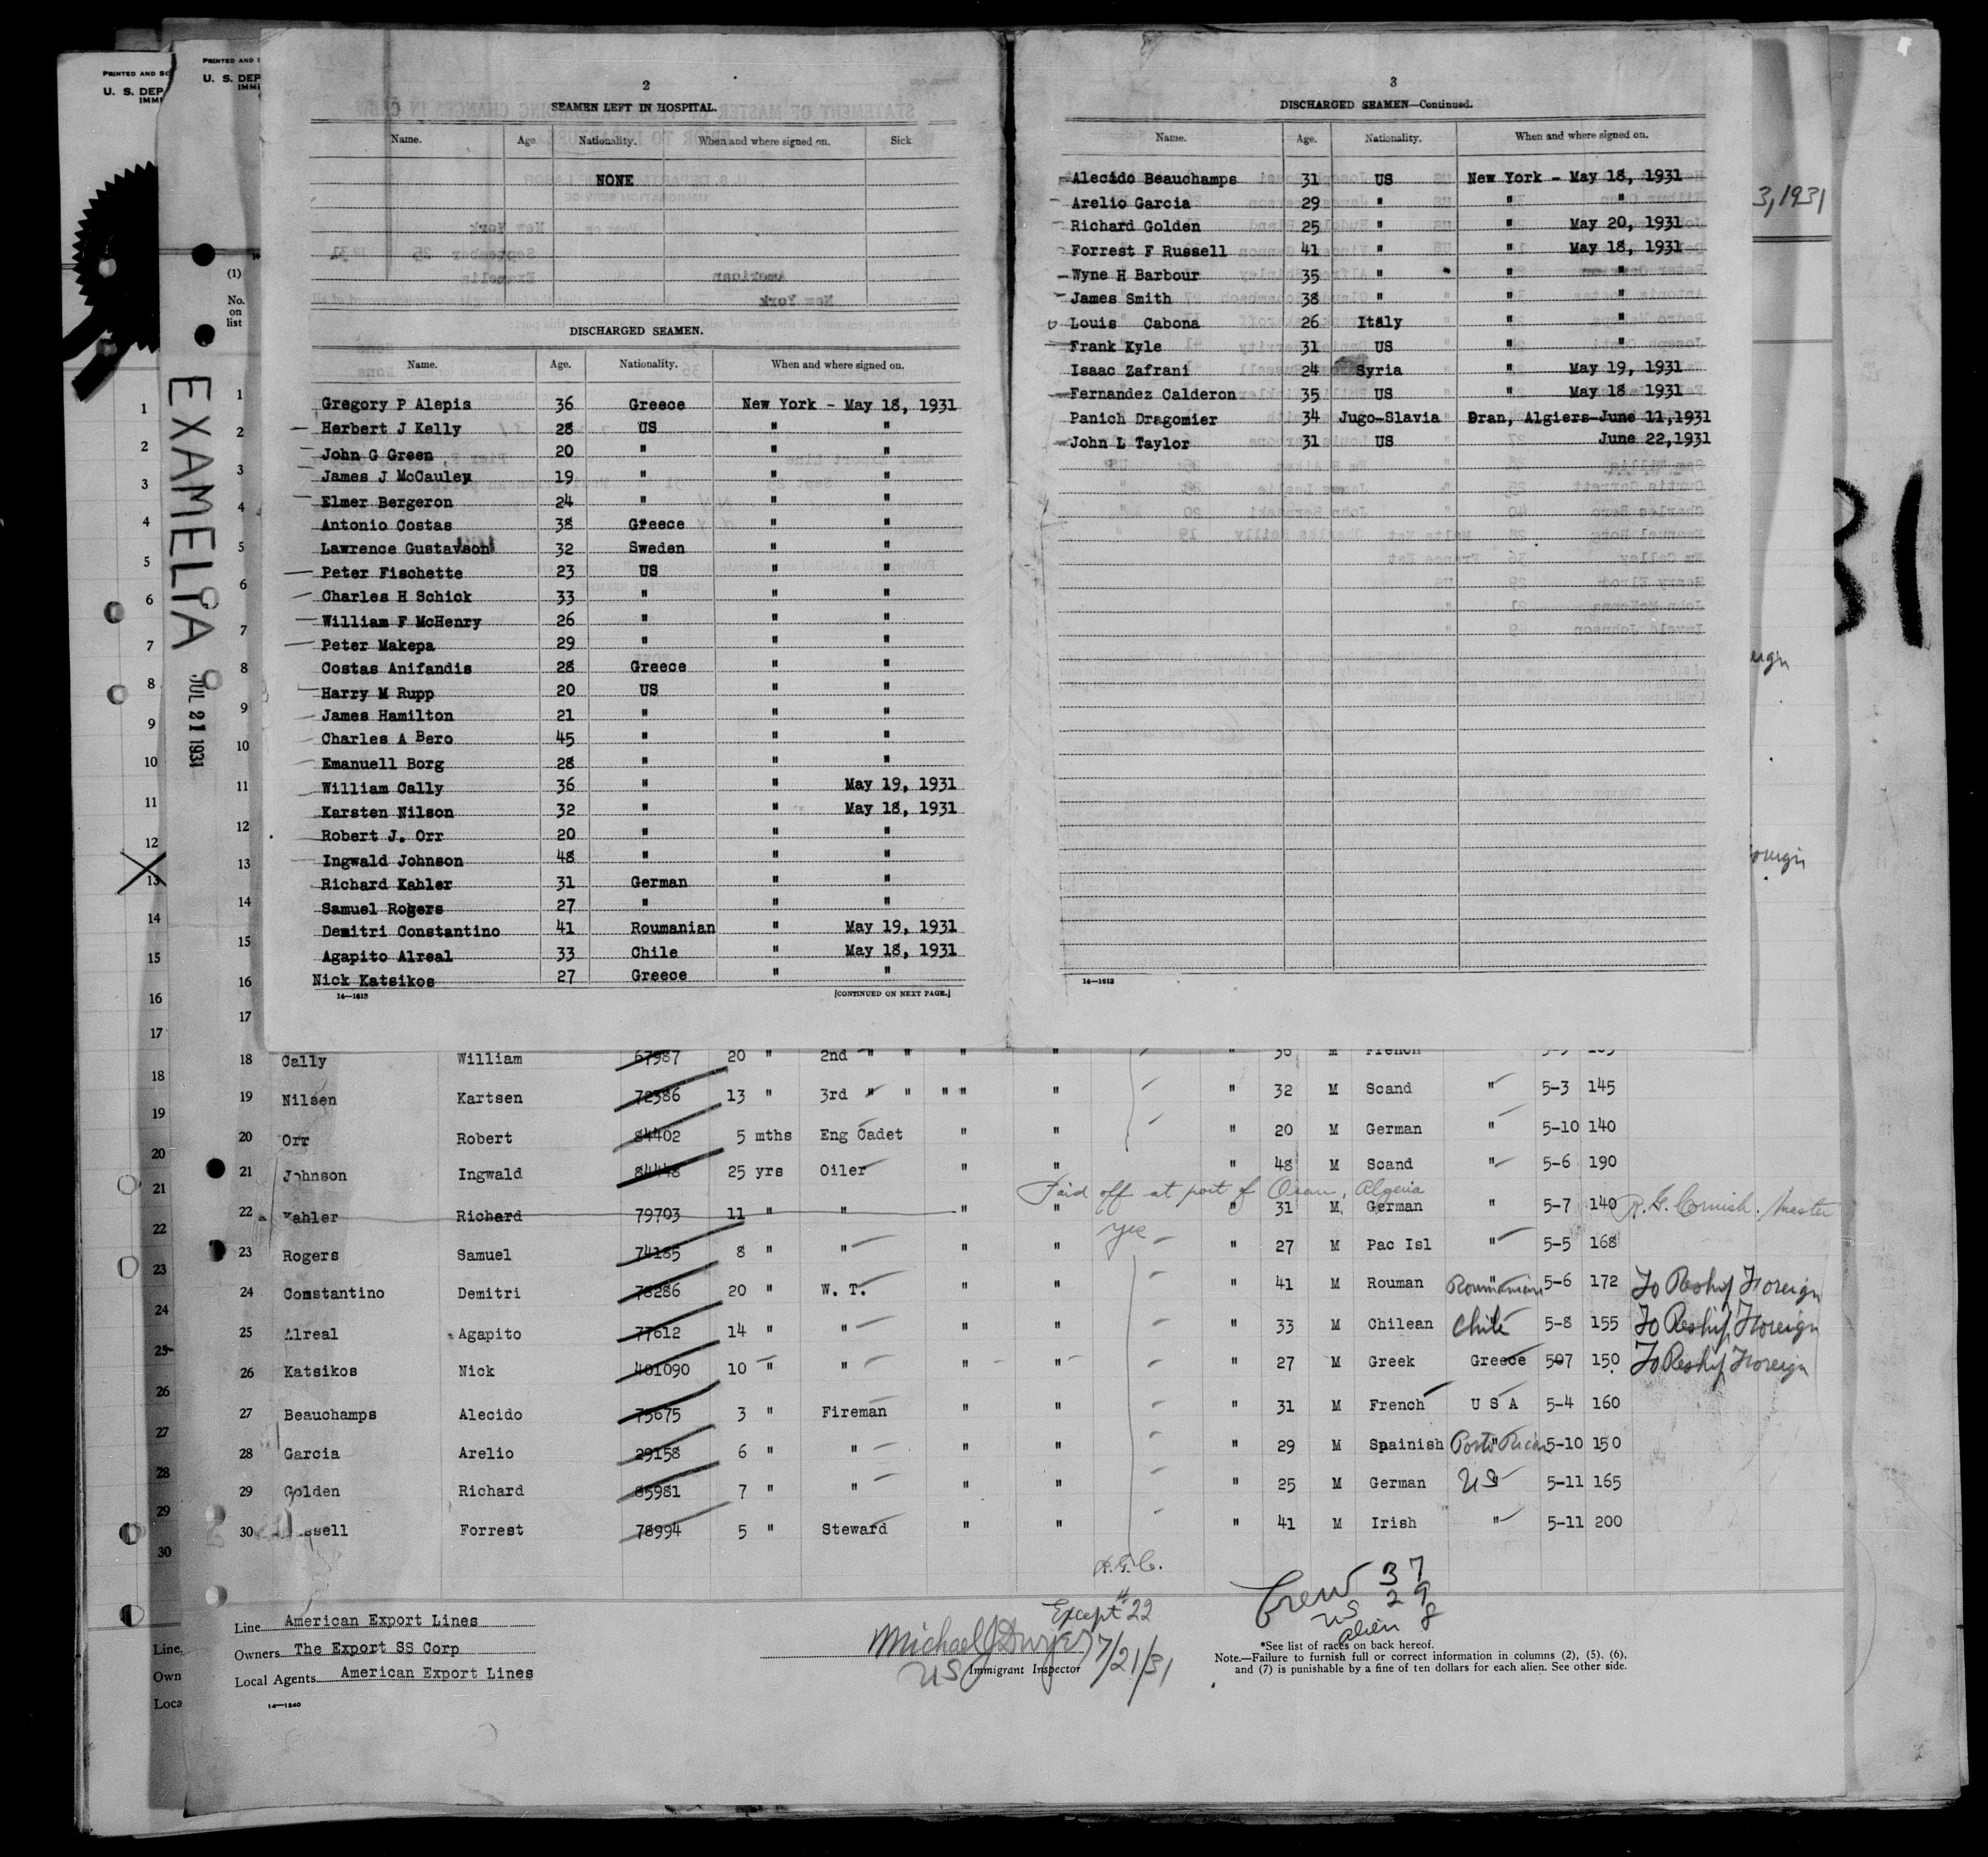 PRINTED AND
U. S. DEP
IMMI
PRINTED AND
U. S. DEP
IMMI
(1)
No.
on
list
EXAMELIA
JUL 21 1931
3, 1931
2
SEAMEN LEFT IN HOSPITAL.
Name. Age Nationality. When and where signed on. Sick
NONE
DISCHARGED SEAMEN.
Name. Age. Nationality. When and where signed on.
Gregory P Alepis 36 Greece New York - May 18, 1931
Herbert J Kelly 28 US " "
John G Green 20 " " "
James J McCauley 19 " " "
Elmer Bergeron 24 " " "
Antonio Costas 38 Greece " "
Lawrence Gustavson 32 Sweden " "
Peter Fischette 23 US " "
Charles H Schick 33 " " "
William F McHenry 26 " " "
Peter Makepa 29 " " "
Costas Anifandis 28 Greece " "
Harry M Rupp 20 US " "
James Hamilton 21 " " "
Charles A Bero 45 " " "
Emanuell Borg 28 " " "
William Cally 36 " " May 19, 1931
Karsten Nilson 32 " " May 18, 1931
Robert J. Orr 20 " " "
Ingwald Johnson 48 " " "
Richard Kahler 31 German " "
Samuel Rogers 27 " " "
Demitri Constantino 41 Roumanian " May 19, 1931
Agapito Alreal 33 Chile " May 18, 1931
Nick Katsikos 27 Greece " "
14—1613 [CONTINUED ON NEXT PAGE.]
3
DISCHARGED SEAMEN—Continued.
Name. Age. Nationality. When and where signed on.
Alecido Beauchamps 31 US New York - May 18, 1931
Arelio Garcia 29 " " "
Richard Golden 25 " " May 20, 1931
Forrest F Russell 41 " " May 18, 1931
Wyne H Barbour 35 " " "
James Smith 38 " " "
Louis Cabona 26 Italy " "
Frank Kyle 31 US " "
Isaac Zafrani 24 Syria " May 19, 1931
Fernandez Calderon 35 US " May 18 1931
Panich Dragomier 34 Jugo-Slavia Oran, Algiers-June 11,1931
John L Taylor 31 US June 22,1931
14—1613
18 Cally William 67987 20 " 2nd " " " " " 36 M French " 5-9
19 Nilsen Kartsen 72386 13 " 3rd " " " " " " 32 M Scand " 5-3 145
20 Orr Robert 84402 5 mths Eng Cadet " " " 20 M German " 5-10 140
21 Johnson Ingwald 84448 25 yrs Oiler " " " 48 M Scand " 5-6 190
Paid off at port of Oran, Algeria
22 Kahler Richard 79703 11 " " " " " 31 M German " 5-7 140 R. G. Cornish. Master
23 Rogers Samuel 74185 8 " " " " yes " 27 M Pac Isl " 5-5 168
24 Constantino Demitri 78286 20 " W. T. " " " 41 M Rouman Roumanian 5-6 172 To Reship Foreign
25 Alreal Agapito 77612 14 " " " " " 33 M Chilean Chile 5-8 155 To Reship Foreign
26 Katsikos Nick 401090 10 " " " " " 27 M Greek Greece 507 150 To Reship Foreign
27 Beauchamps Alecido 75675 3 " Fireman " " " 31 M French U S A 5-4 160
28 Garcia Arelio 29158 6 " " " " " 29 M Spainish Porto Rican 5-10 150
29 Golden Richard 85981 7 " " " " " 25 M German US 5-11 165
30 Russell Forrest 78994 5 " Steward " " " 41 M Irish " 5-11 200
R.G.C.
Except #22
Crew 37
US 29
alien 8
Line American Export Lines
Owners The Export SS Corp
Local Agents American Export Lines
14—1240
Michael J Dwyer 7/21/31
US Immigrant Inspector
*See list of races on back hereof.
Note.—Failure to furnish full or correct information in columns (2), (5), (6),
and (7) is punishable by a fine of ten dollars for each alien. See other side.
Line,
Own
Loca